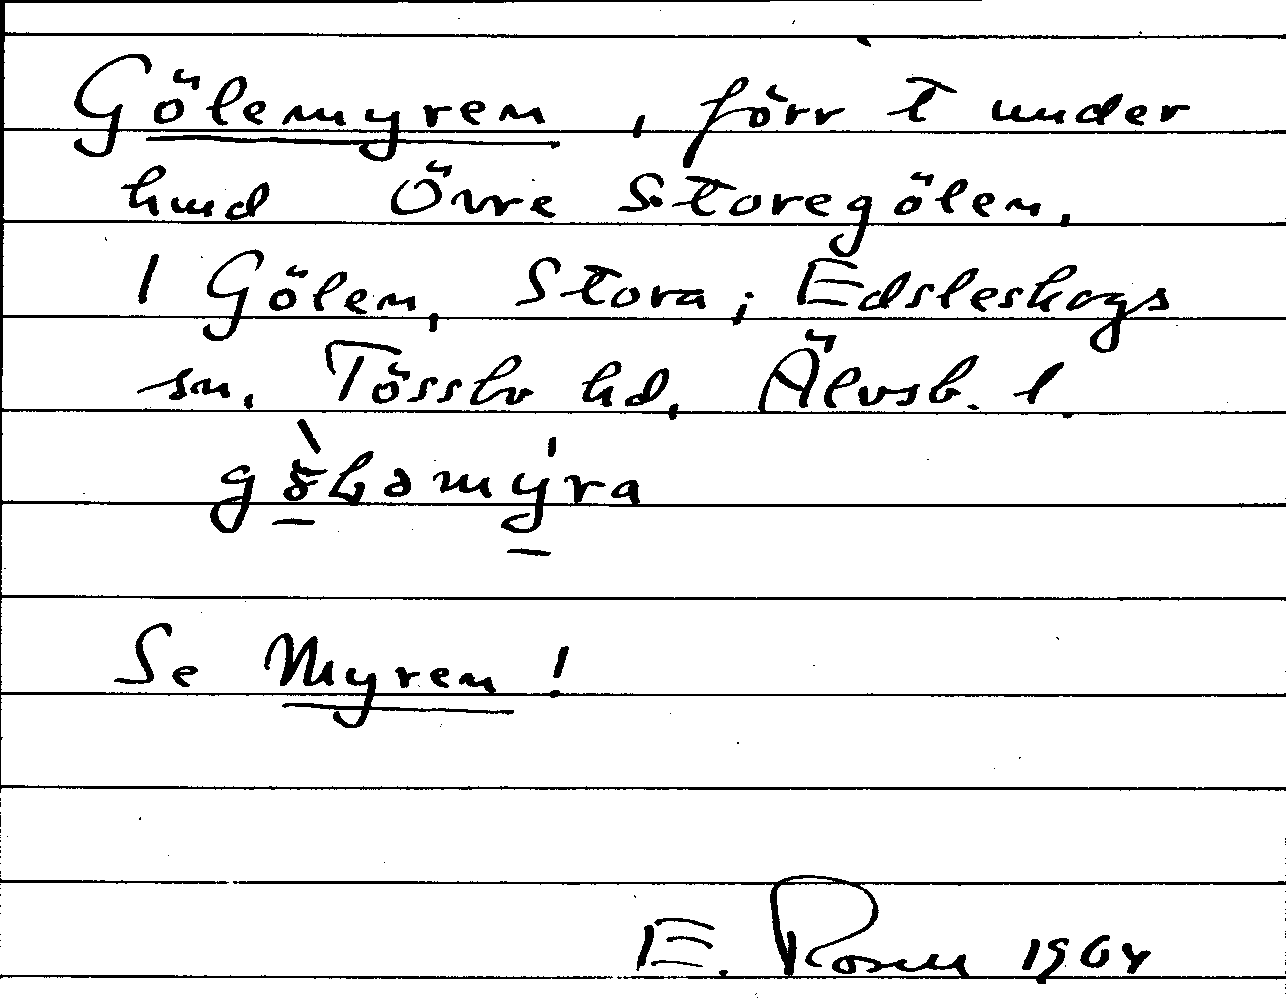 Gölemyren, förr t under
hmd Övre Storegölen,
1 Gölen, Stora; Edsleskogs
sn. Tössbo hd, Älvsb. l.
Se Myren!
E. Rosell 1964